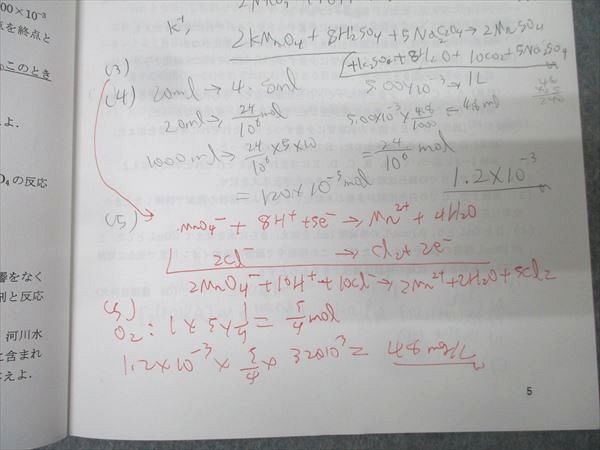 00×10⁻³
点を終点と
このとき
よ.
O₄の反応
響をなく
剤と反応
河川水
に含まれ
えよ.
K⁺,
2KMnO₄ + 8H₂SO₄ + 5Na₂C₂O₄ → 2MnSO₄
+K₂SO₄ + 8H₂O + 10CO₂ + 5Na₂SO₄
(3)
(4) 20ml → 4.8ml
5.00×10⁻³ → 1L
20ml → 24/10⁶ mol
5.00×10⁻³ × 4.8/1000 = 4.8ml
1000ml → 24/10⁶ × 5×10
= 24/10⁶ mol
= 120×10⁻⁵ mol
1.2×10⁻³
(5)
MnO₄⁻ + 8H⁺ + 5e⁻ → Mn²⁺ + 4H₂O
2Cl⁻ → Cl₂ + 2e⁻
2MnO₄⁻ + 16H⁺ + 10Cl⁻ → 2Mn²⁺ + 2H₂O + 5Cl₂
(5)
O₂ : 1 × 5 × 1/4 = 5/4 mol
1.2×10⁻³ × 5/4 × 32×10³ = 48 mg/L
5